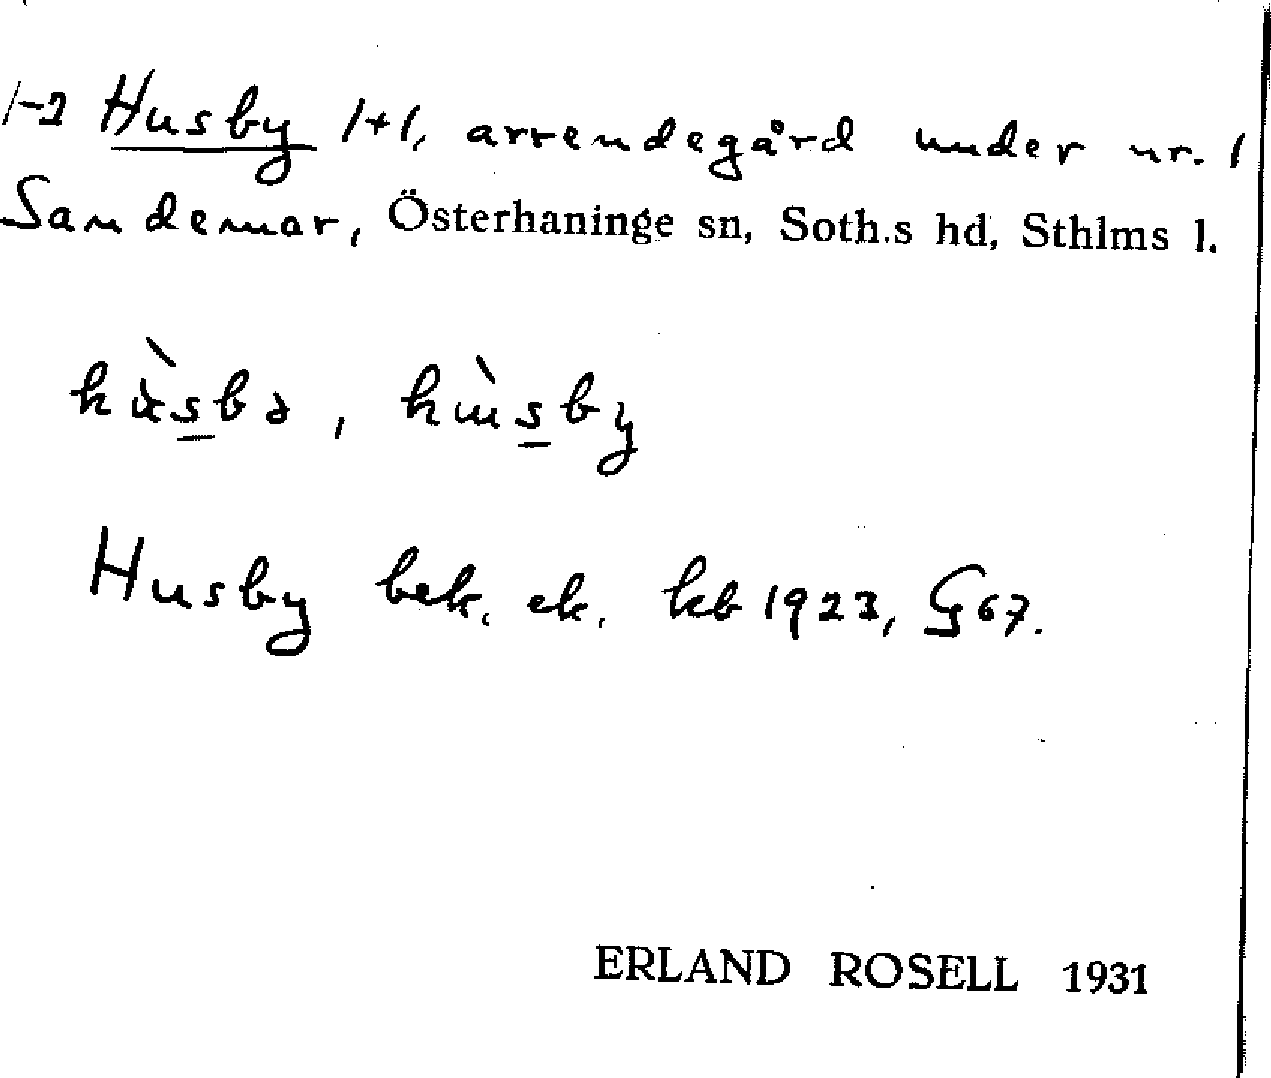 1-2 Husby 1+1, arrendegård under nr. 1
Sandemar, Österhaninge sn, Soth.s hd, Sthlms l.
Husby bek. ek. kb 1923, G 67.
ERLAND ROSELL 1931